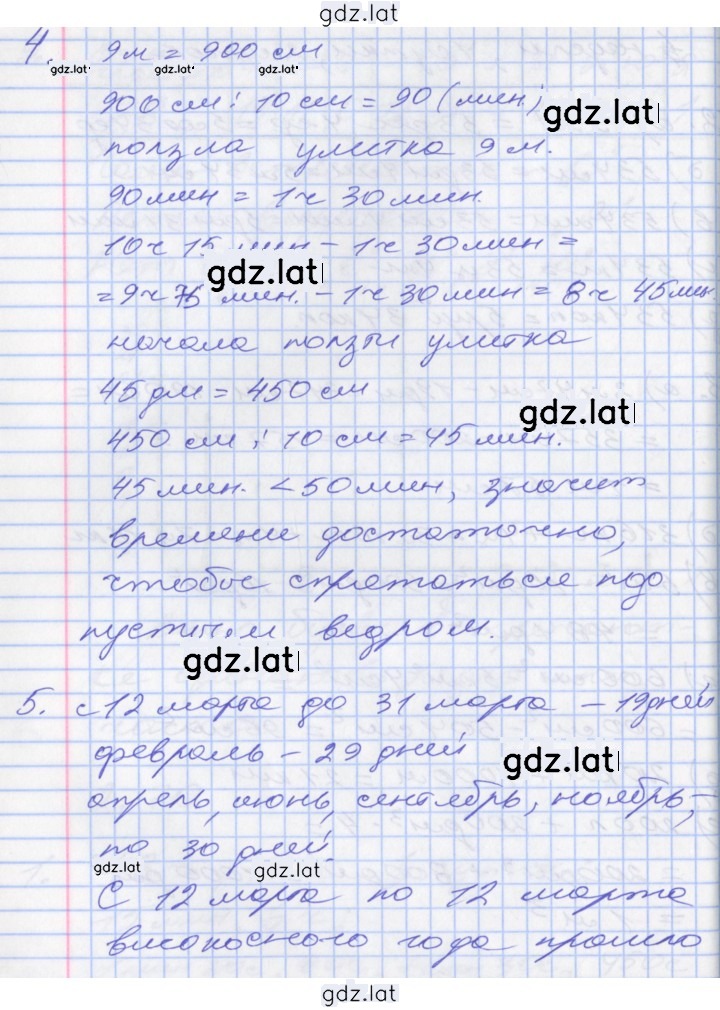 gdz.lat
4. 9м = 900 см
gdz.lat gdz.lat gdz.lat
900 см : 10 см = 90 (мин)
gdz.lat
ползла улитка 9 м.
90 мин = 1ч 30 мин.
10ч 15 мин - 1ч 30 мин =
gdz.lat
= 9ч 75 мин. - 1ч 30 мин = 8ч 45 мин
начала ползти улитка
45 дм = 450 см
gdz.lat
450 см : 10 см = 45 мин.
45 мин. < 50 мин, значит
времени достаточно,
чтобы спрятаться под
пустым ведром.
gdz.lat
5. с 12 марта до 31 марта - 19 дней
февраль - 29 дней
gdz.lat
апрель, июнь, сентябрь, ноябрь -
по 30 дней.
gdz.lat gdz.lat
С 12 марта по 12 марта
високосного года прошло
gdz.lat